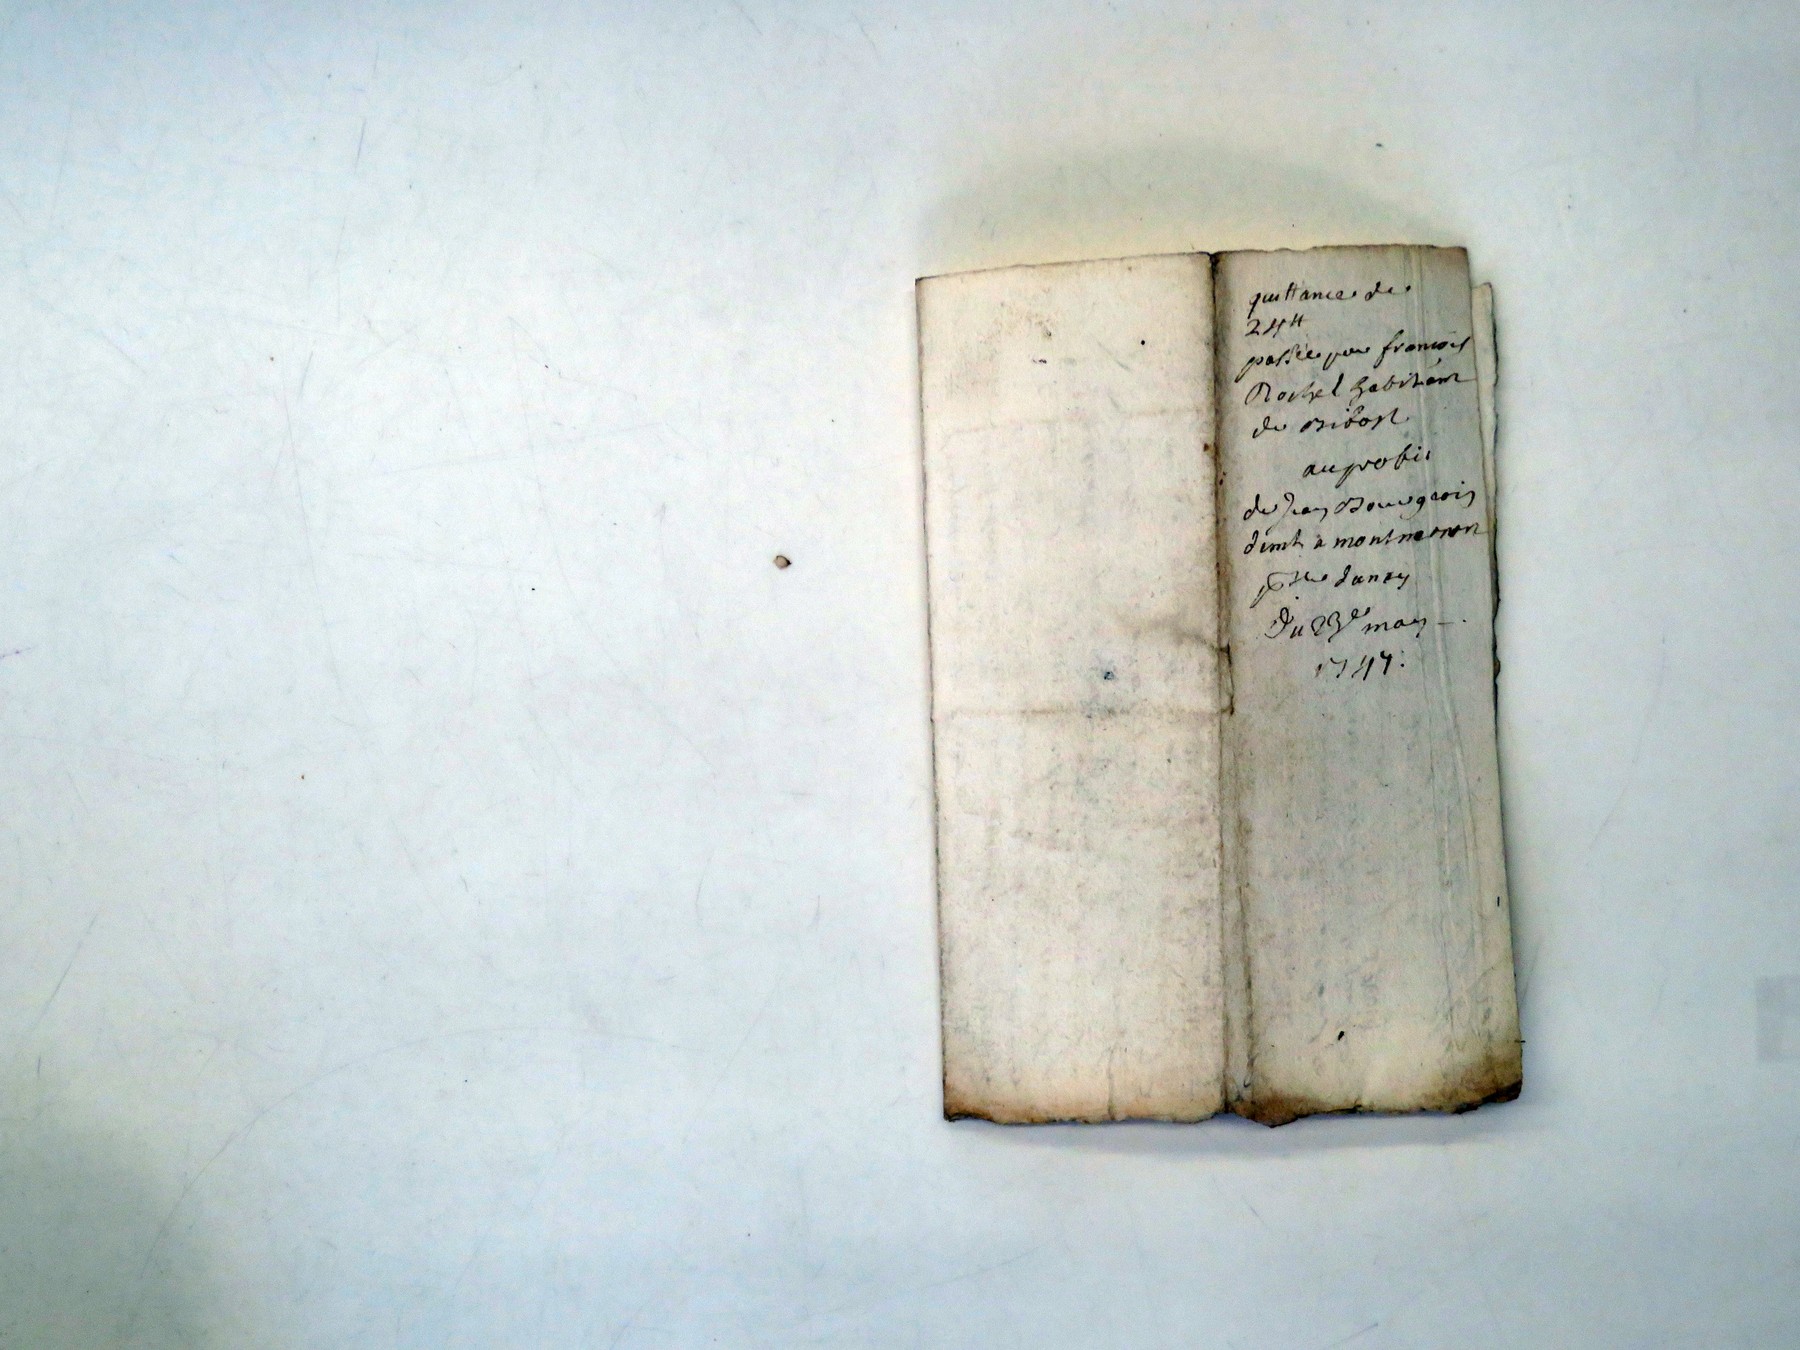 quittance de
24 ₶
passée par francois
Rochel habitant
de Bibost
au profit
de Jean Bourgeois
demt a montmenon
psse dancy
Du 23e may
1747.